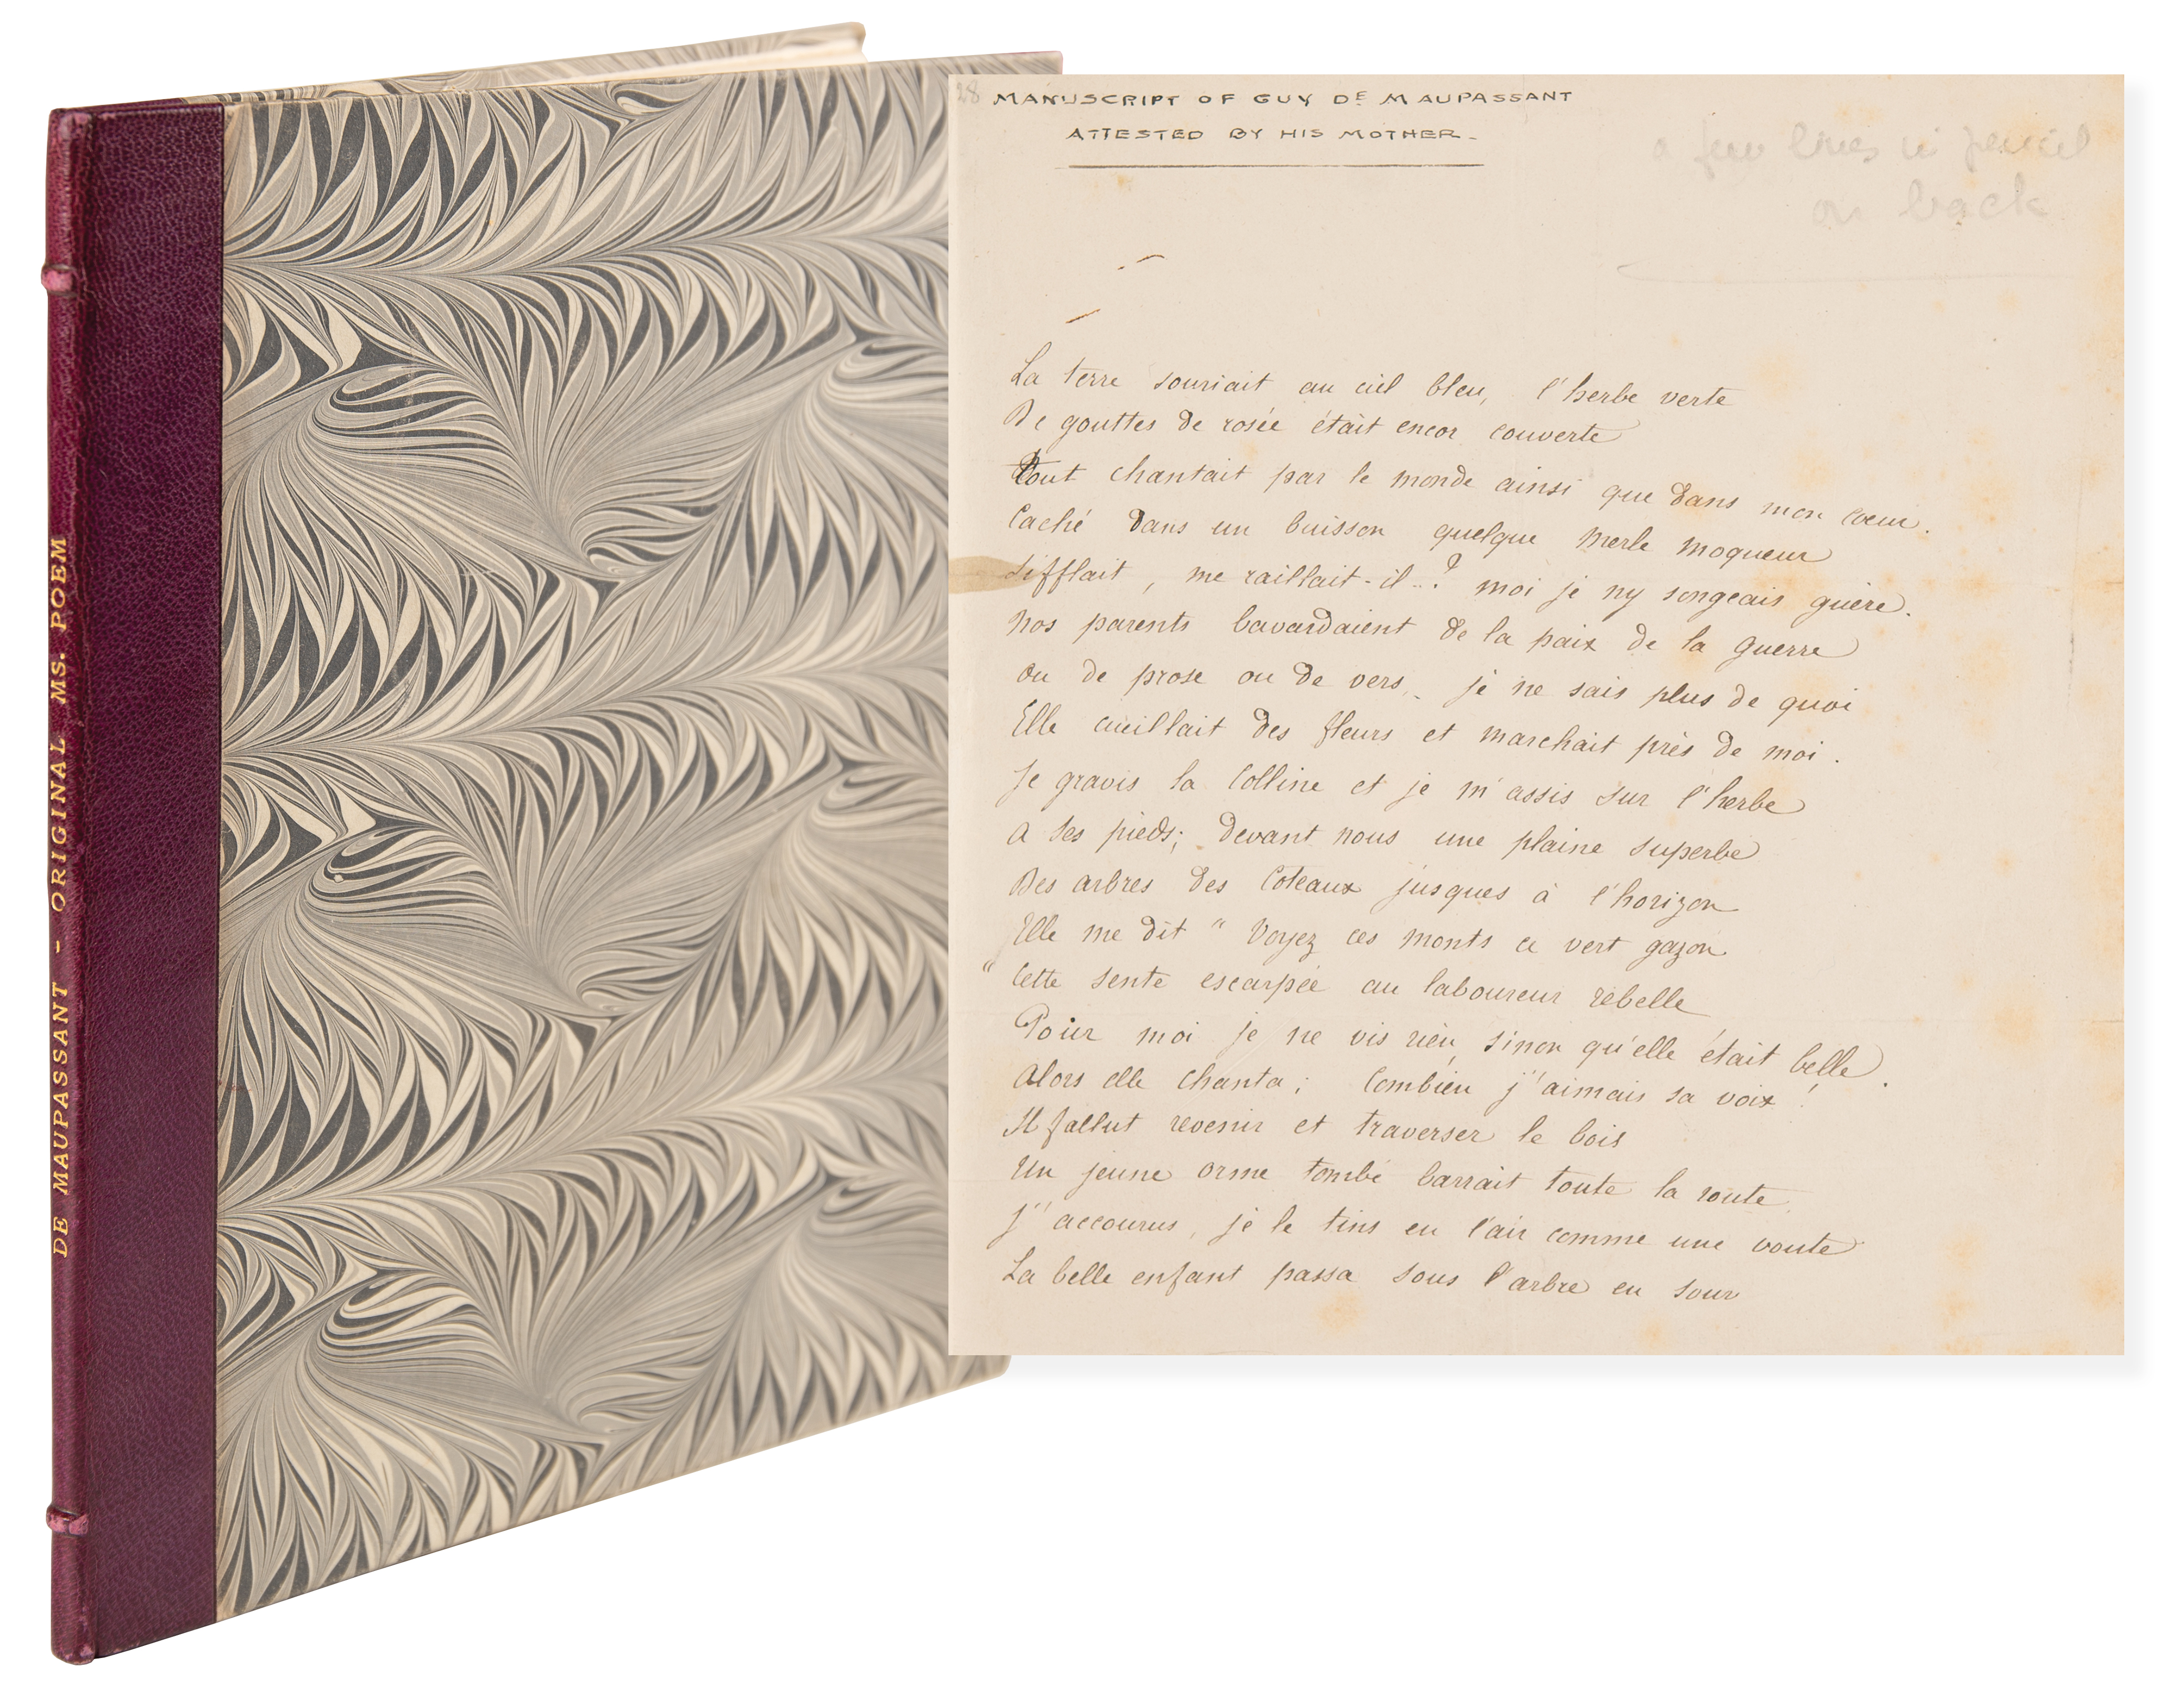 DE MAUPASSANT - ORIGINAL MS. POEM
28
MANUSCRIPT OF GUY DE MAUPASSANT
ATTESTED BY HIS MOTHER -
a few lines in pencil
on back
La terre souriait au ciel bleu, l'herbe verte
De gouttes de rosée était encor couverte
Tout chantait par le monde ainsi que dans mon coeur.
Caché dans un buisson quelque merle moqueur
Sifflait, me raillait-il..? moi je ny songeais guère.
Nos parents bavardaient de la paix de la guerre
Ou de prose ou de vers, je ne sais plus de quoi
Elle cueillait des fleurs et marchait près de moi.
Je gravis la Colline et je m'assis sur l'herbe
A ses pieds; devant nous une plaine superbe
Des arbres des Coteaux jusques à l'horizon
Elle me dit " Voyez ces monts ce vert gazon
" Cette sente escarpée au laboureur rebelle
Pour moi je ne vis rien, sinon qu'elle était belle.
Alors elle chanta; Combien j'aimais sa voix!
Il fallut revenir et traverser le bois
Un jeune orme tombé barrait toute la route
J'accourus, je le tins en l'air comme une voute
La belle enfant passa sous l'arbre en sour